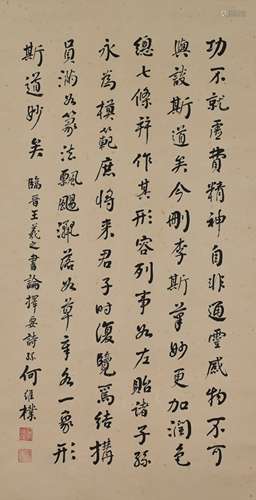 功不就虛費精神自非通靈感物不可
與談斯道矣今刪李斯筆妙更加潤色
總七條并作其形容列事如左貽諸子孫
永為模範庶將來君子時復覽焉結構
員滿如篆法飄颺灑落如章草各一象形
斯道妙矣
臨晉王羲之書論擇要
何維樸